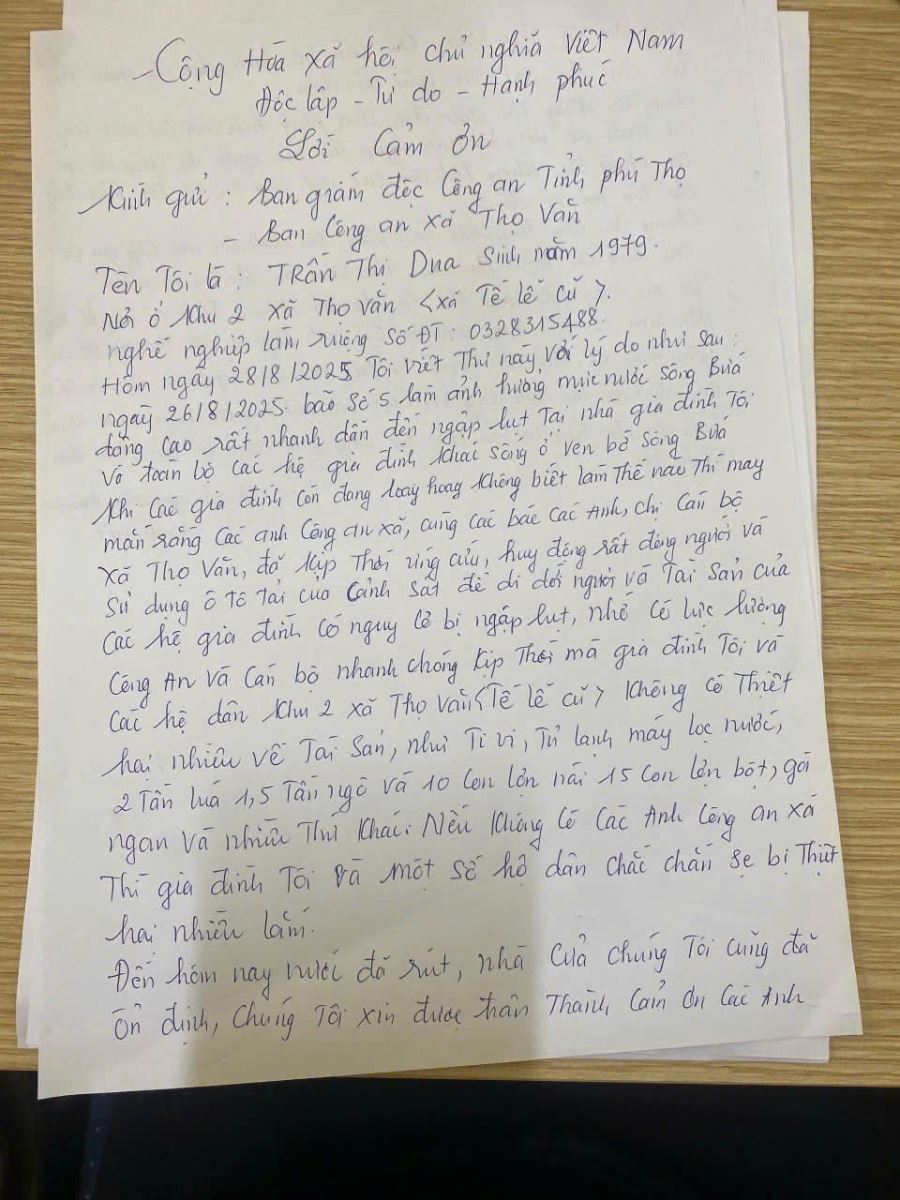 Cộng Hòa xã hội chủ nghĩa Việt Nam
Độc lập - Tự do - Hạnh phúc
Lời Cảm ơn
Kính gửi : Ban giám đốc Công an Tỉnh phú Thọ
- Ban Công an xã Thọ Văn
Tên Tôi là : TRẦN Thị Dua Sinh năm 1979.
Nơi ở Khu 2 xã Thọ Văn <xã Tề lễ cũ>.
nghề nghiệp làm ruộng Số ĐT : 0328315488.
Hôm ngày 28/8/2025 Tôi viết Thư này với lý do như sau :
ngày 26/8/2025 bão số 5 làm ảnh hưởng mực nước sông Bứa
dâng cao rất nhanh dẫn đến ngập lụt Tại nhà gia đình Tôi
Và toàn bộ các hộ gia đình khác sống ở ven bờ sông Bứa
Khi Các gia đình còn đang loay hoay không biết làm Thế nào Thì may
mắn rằng Các anh Công an xã, cùng các bác Các Anh, chị Cán bộ
xã Thọ Văn, đã kịp Thời ứng cứu, huy động rất đông người và
Sử dụng ô tô tải của Cảnh sát để di dời người và Tài Sản của
Các hộ gia đình có nguy cơ bị ngập lụt, nhờ có lực lượng
Công An và Cán bộ nhanh chóng kịp Thời mà gia đình Tôi và
Các hộ dân Khu 2 xã Thọ Văn <Tề lễ cũ> không có Thiệt
hại nhiều về Tài Sản, như Ti vi, Tủ lạnh máy lọc nước,
2 Tấn lúa 1,5 Tấn ngô và 10 Con lợn nái 15 con lợn bột, gà
ngan và nhiều Thứ khác. Nếu không có Các Anh Công an xã
Thì gia đình Tôi và một số hộ dân chắc chắn sẽ bị Thiệt
hại nhiều lắm.
Đến hôm nay nước đã rút, nhà Của chúng Tôi cũng đã
ổn định, Chúng Tôi xin được chân Thành Cảm ơn Các Anh